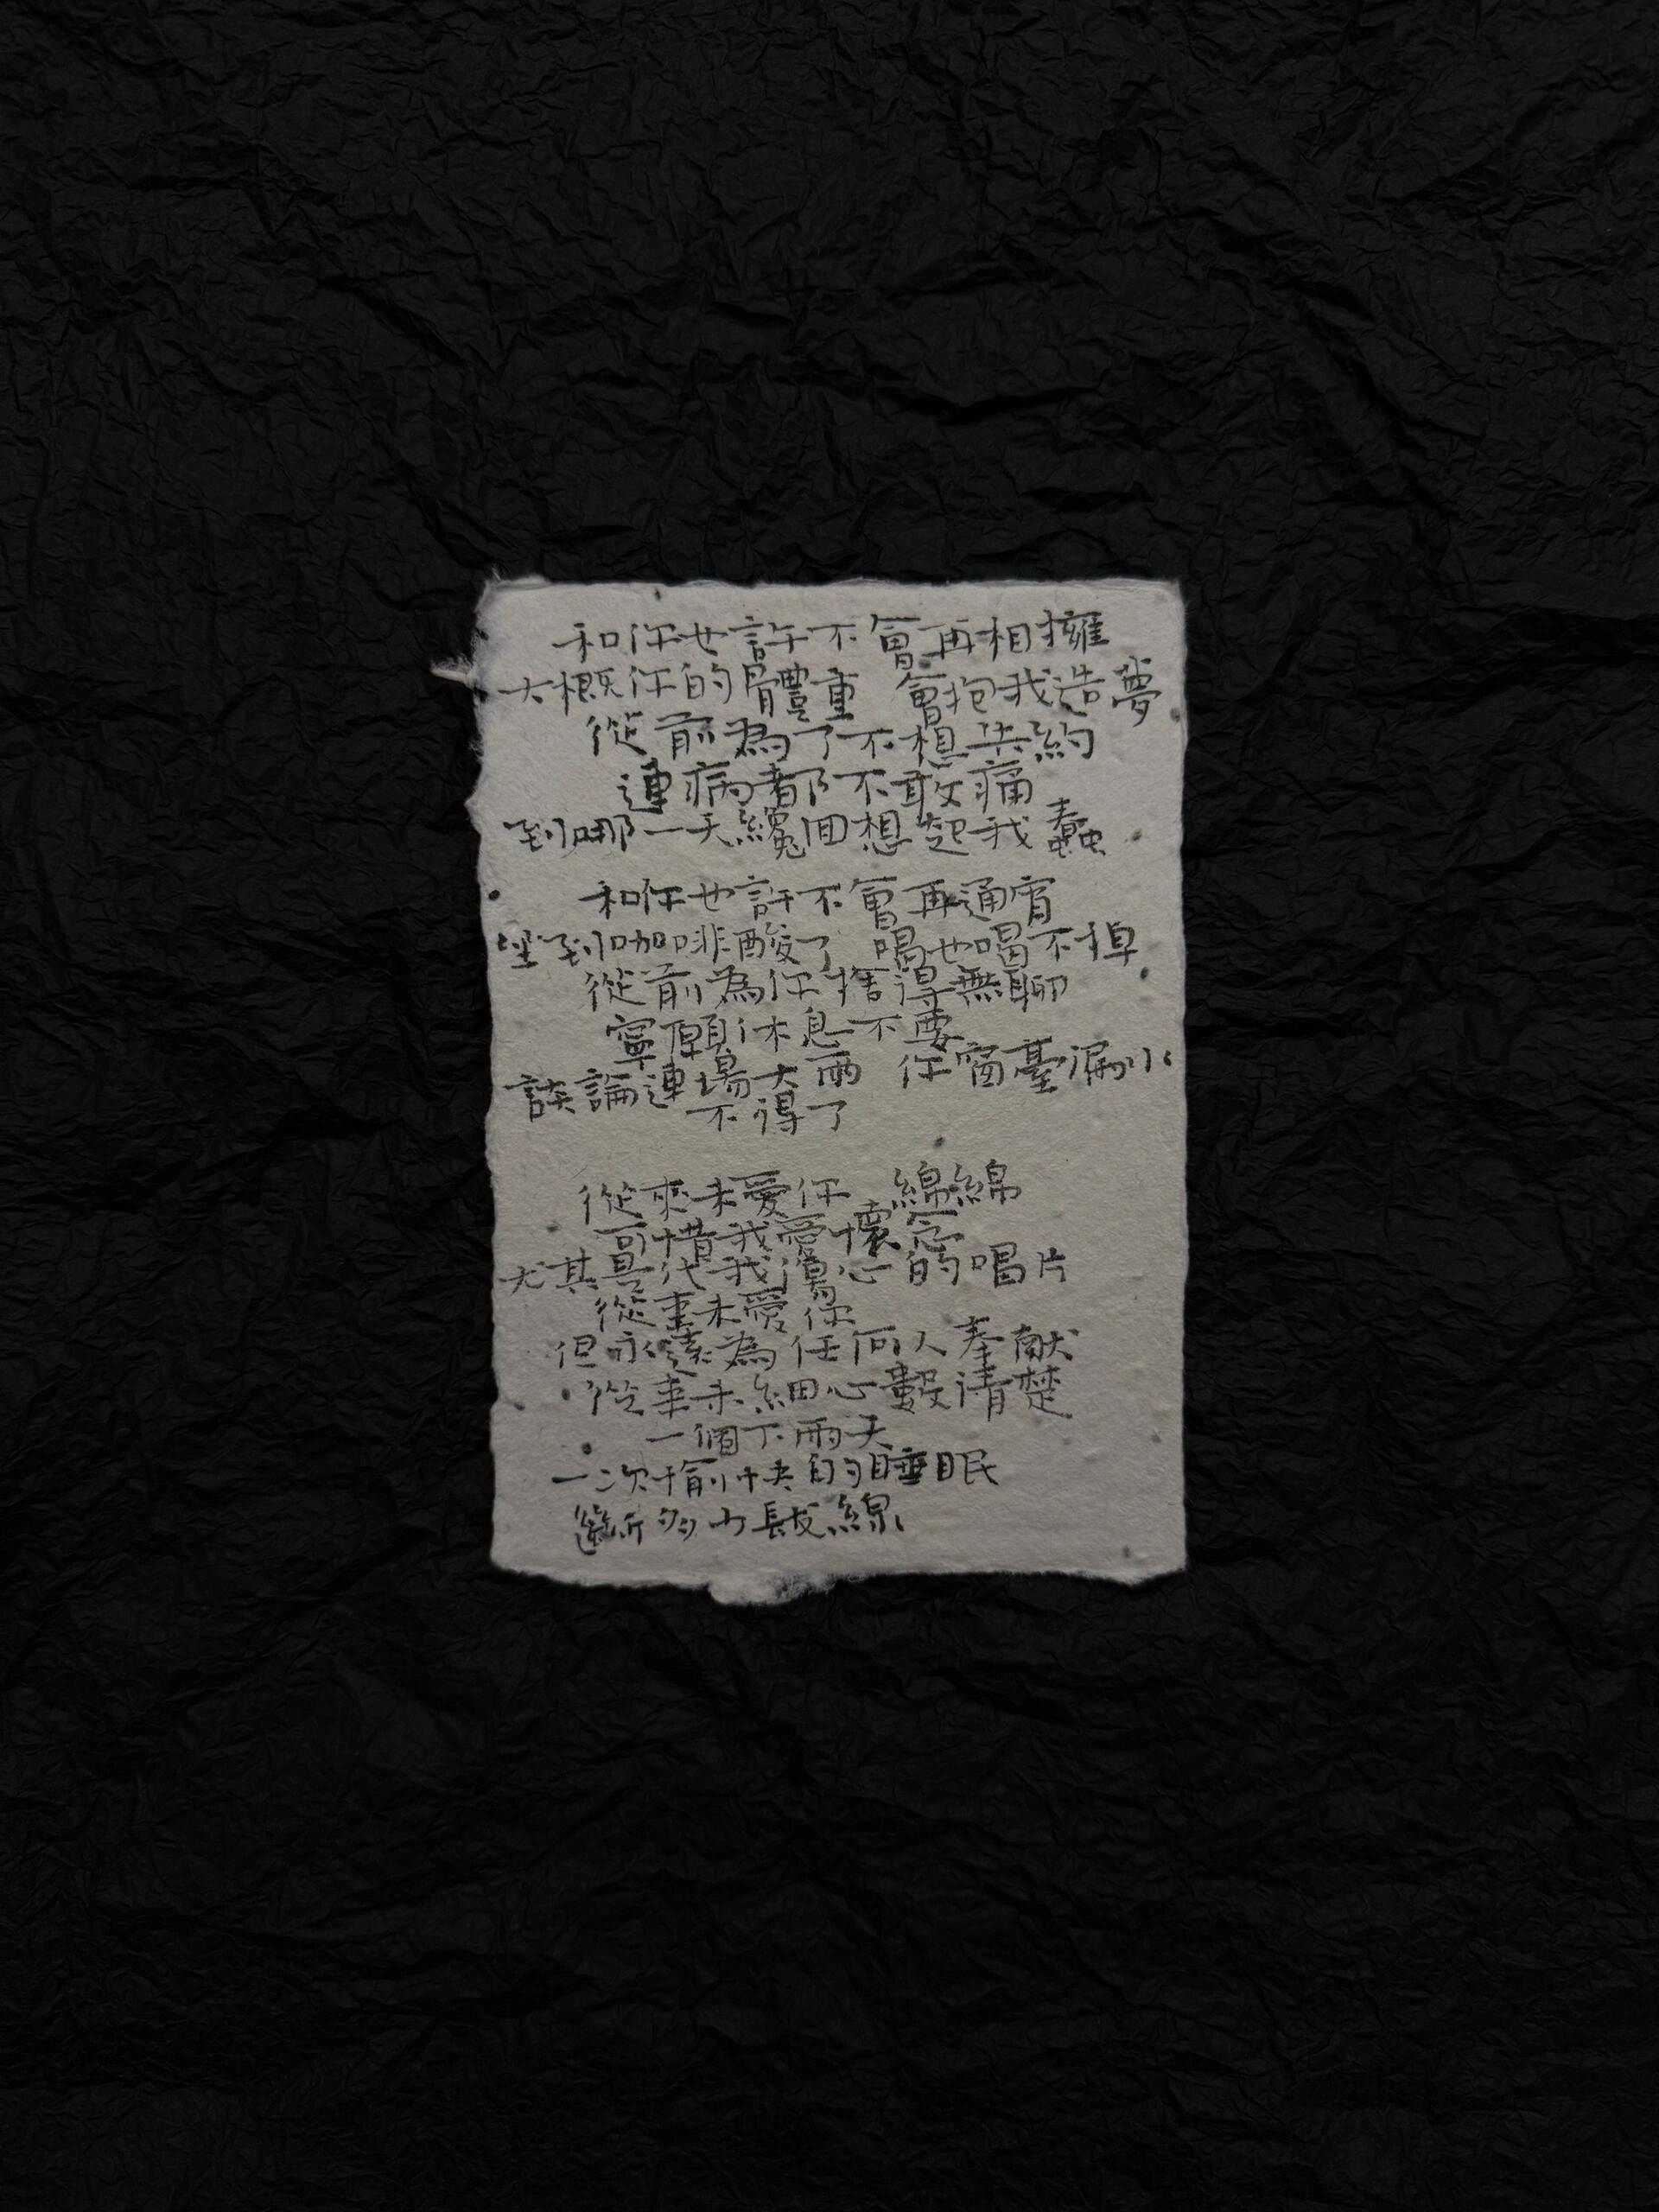 和你也許不會再相擁
大概你的體重 會抱我造夢
從前為了不想失約
連病都不敢痛
到哪一天纔回想起我蠢
和你也許不會再通宵
坐到咖啡酸了 喝也喝不掉
從前為你捨得無聊
寧願休息不要
談論連場大雨 你窗臺漏水
不得了
從來未愛你 綿綿
可惜我愛懷念
尤其是代我傷心的唱片
從來未愛你
但永遠為任何人奉獻
從來未細心數清楚
一個下雨天
一次愉快的睡眠
斷多少髮線